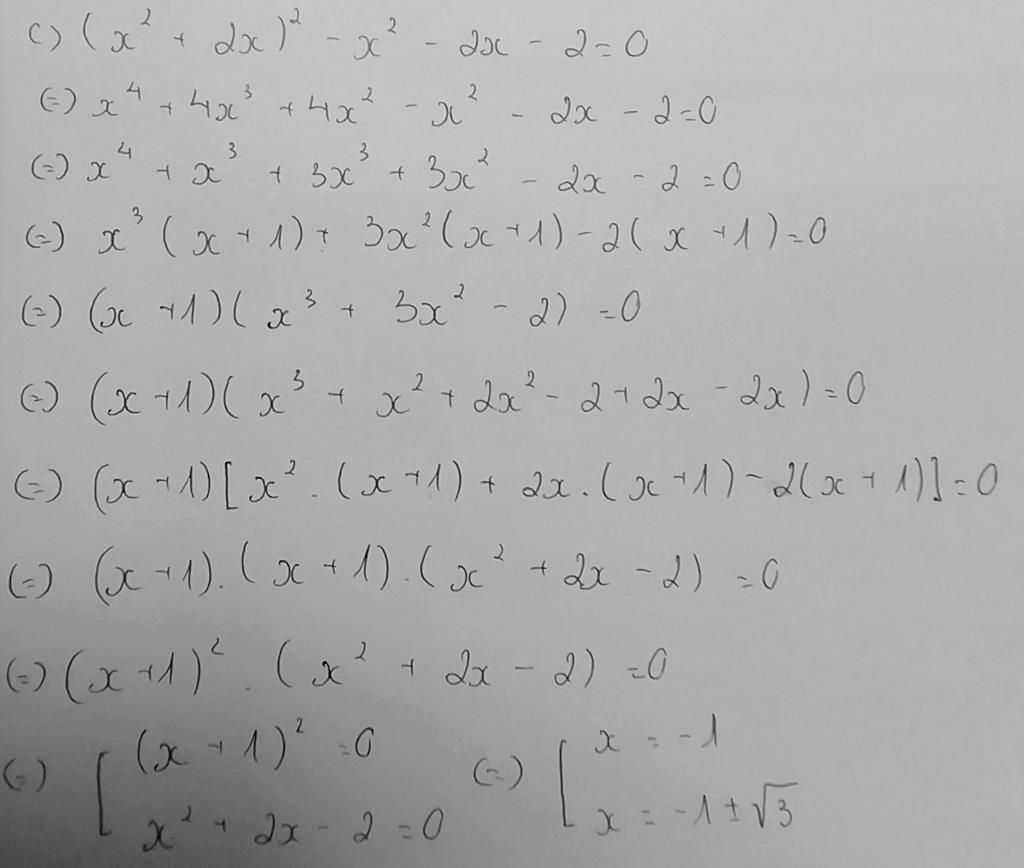 c) (x² + 2x)² - x² - 2x - 2 = 0
(=) x⁴ + 4x³ + 4x² - x² - 2x - 2 = 0
(=) x⁴ + x³ + 3x³ + 3x² - 2x - 2 = 0
(=) x³ (x + 1) + 3x² (x + 1) - 2 (x + 1) = 0
(=) (x + 1) (x³ + 3x² - 2) = 0
(=) (x + 1) (x³ + x² + 2x² - 2 + 2x - 2x) = 0
(=) (x + 1) [x² . (x + 1) + 2x . (x + 1) - 2(x + 1)] = 0
(=) (x + 1) . (x + 1) . (x² + 2x - 2) = 0
(=) (x + 1)² . (x² + 2x - 2) = 0
(=) [ (x + 1)² = 0 (=) [ x = -1
x² + 2x - 2 = 0 x = -1 ± √3